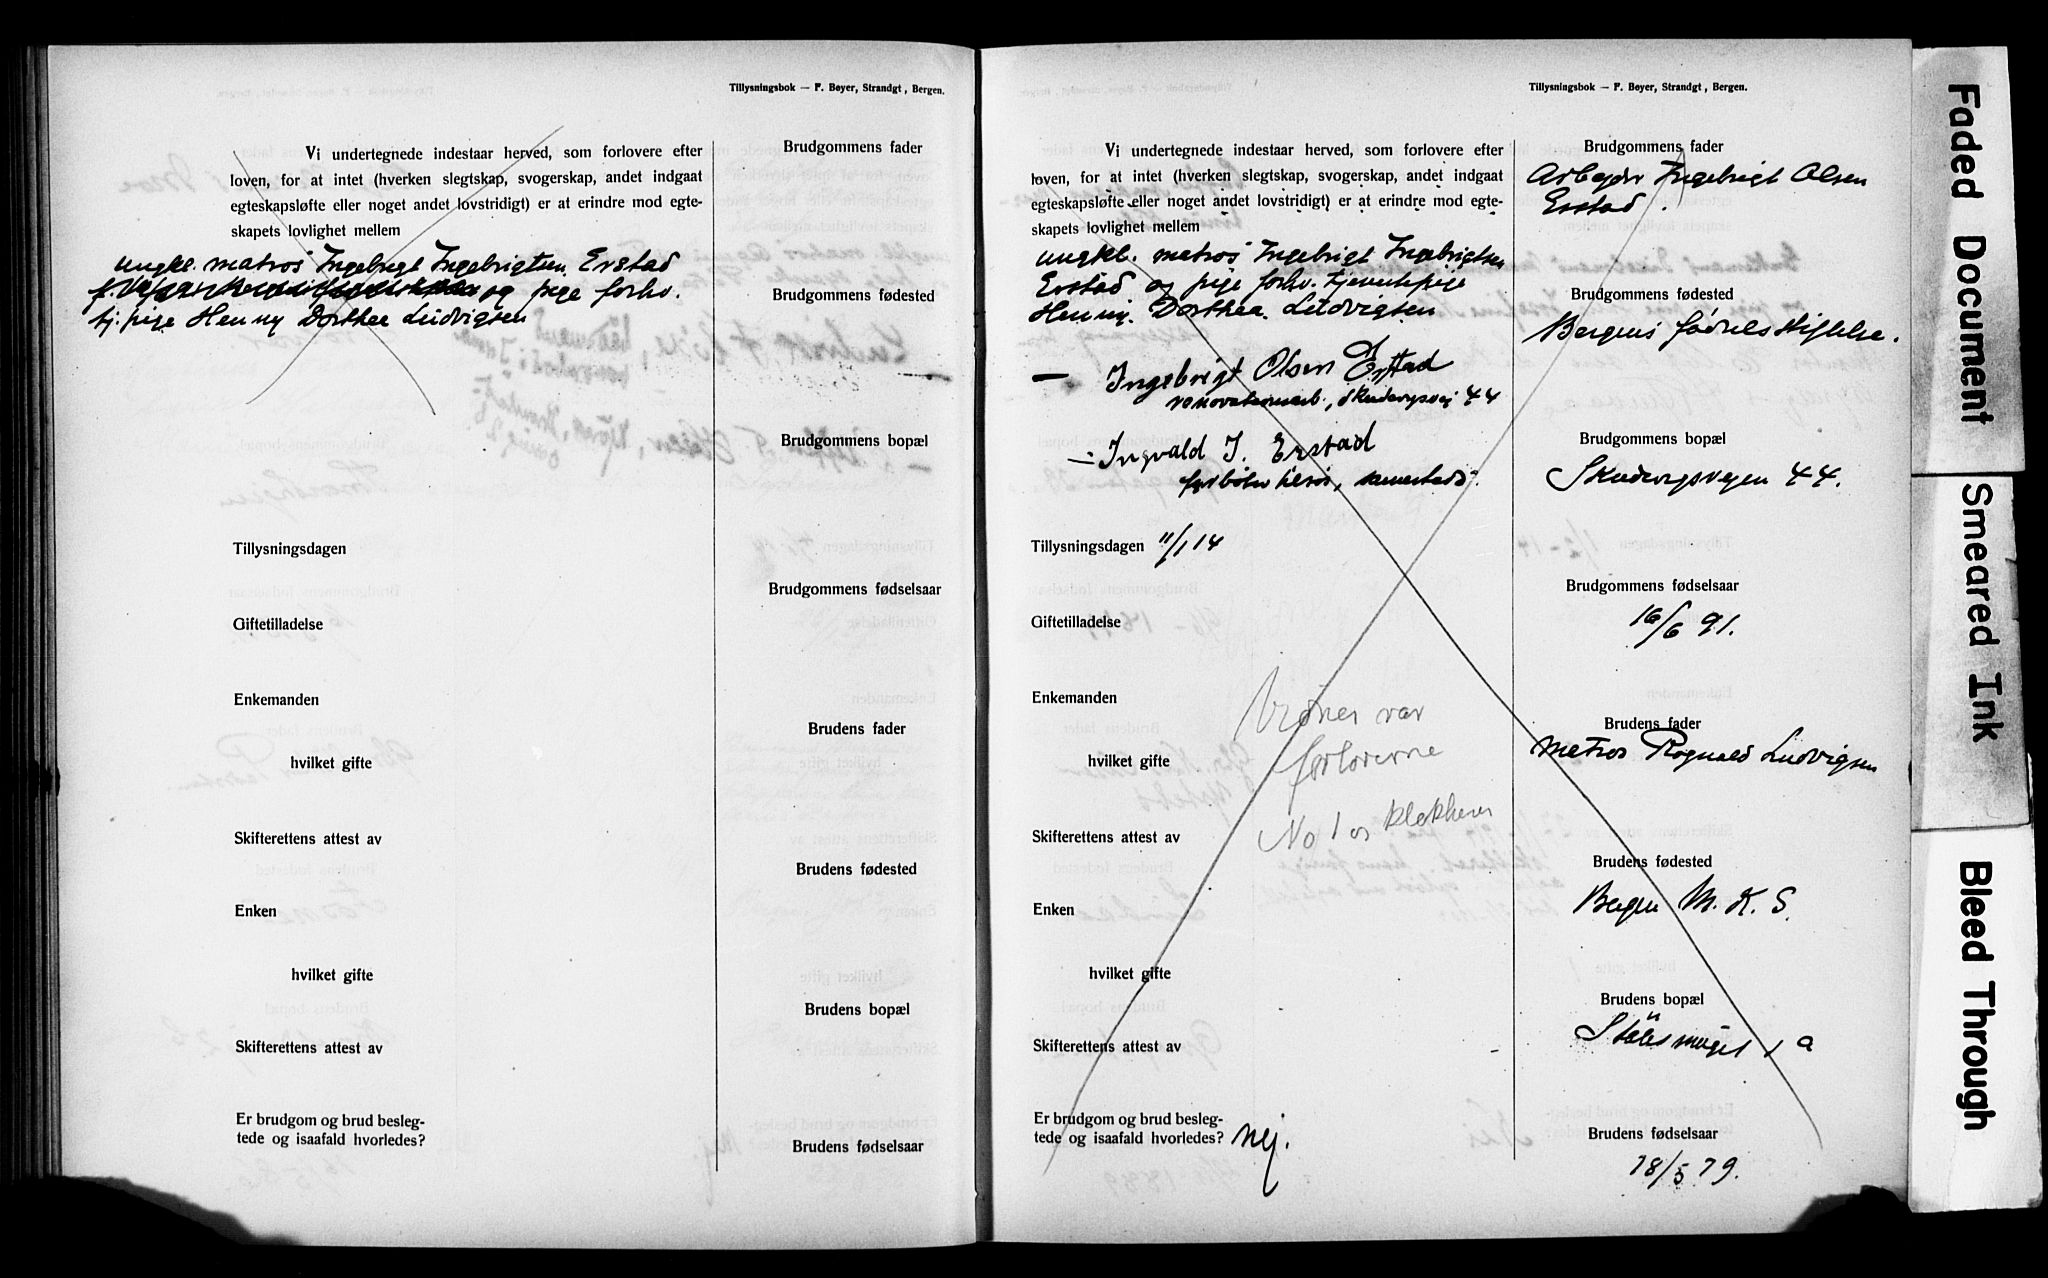 Tillysningsbok — F. Bøyer, Strandgt., Bergen.
Vi undertegnede indestaar herved, som forlovere efter
loven, for at intet (hverken slegtskap, svogerskap, andet indgaat
egteskapsløfte eller noget andet lovstridigt) er at erindre mod egte-
skapets lovlighet mellem
ungkl. matros Ingebrigt Ingebrigtsen Erstad
og pige forhv.
tj. pige Henny Dorthea Ludvigsen
Tillysningsdagen
Giftetilladelse
Enkemanden
hvilket gifte
Skifterettens attest av
Enken
hvilket gifte
Skifterettens attest av
Er brudgom og brud besleg-
tede og isaafald hvorledes?
Brudgommens fader
Brudgommens fødested
Brudgommens bopæl
Brudgommens fødselsaar
Brudens fader
Brudens fødested
Brudens bopæl
Brudens fødselsaar
Tillysningsbok — F. Bøyer, Strandgt., Bergen.
Vi undertegnede indestaar herved, som forlovere efter
loven, for at intet (hverken slegtskap, svogerskap, andet indgaat
egteskapsløfte eller noget andet lovstridigt) er at erindre mod egte-
skapets lovlighet mellem
ungkl. matros Ingebrigt Ingebrigtsen
Erstad og pige forhv. tjenestepige
Henny Dorthea Ludvigsen
— Ingebrigt Olsen Erstad
renovationsarb., Skudevigsvei 44
Ingvald I. Erstad
samesteds.
Tillysningsdagen 11/1 14
Giftetilladelse
Enkemanden
var
hvilket gifte
forloverne
Skifterettens attest av
No 1 og klokkeren
Enken
hvilket gifte
Skifterettens attest av
Er brudgom og brud besleg-
tede og isaafald hvorledes? Nej.
Brudgommens fader
Arbeyder Ingebrigt Olsen
Erstad.
Brudgommens fødested
Bergens fødselsstiftelse.
Brudgommens bopæl
Skudevigsvejen 44.
Brudgommens fødselsaar
16/6 91.
Brudens fader
Matros Rognald Ludvigsen
Brudens fødested
Bergen M. K. S.
Brudens bopæl
Stølesmuget 1 a
Brudens fødselsaar
18/5 79.
Faded Document
Smeared Ink
Bleed Through